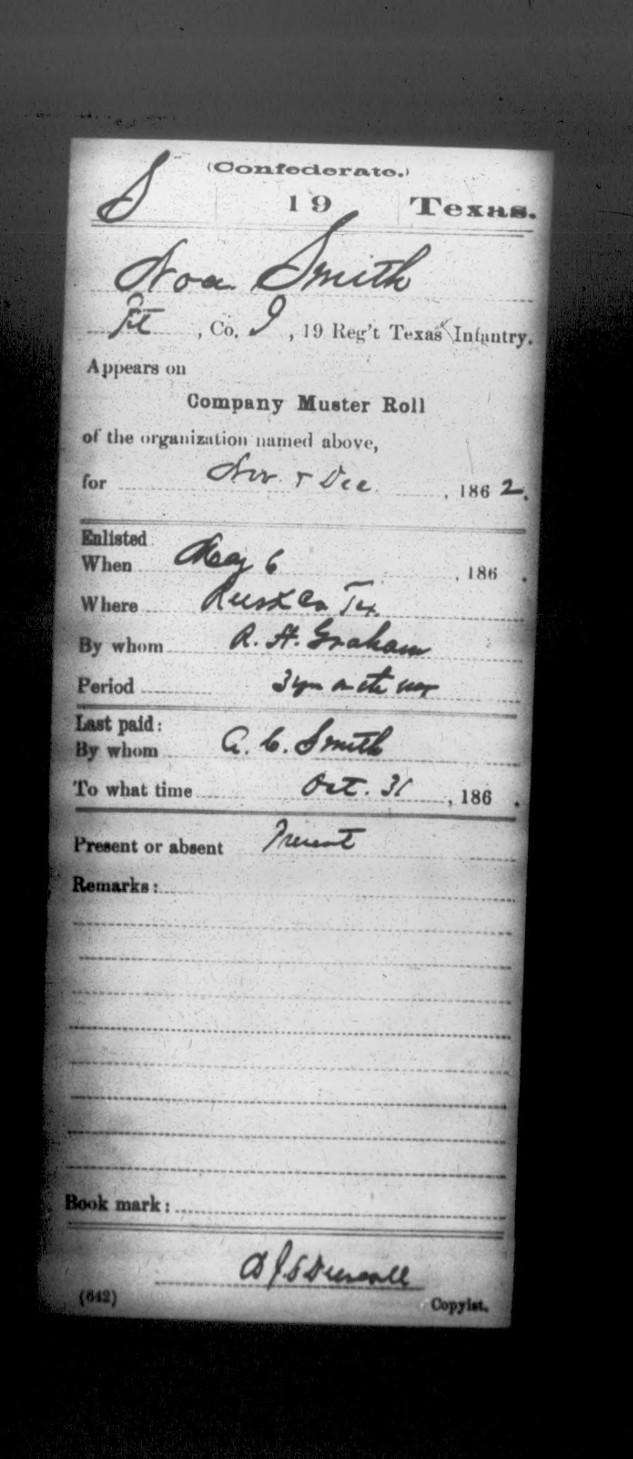 (Confederate.)
S 19 Texas.
Noa Smith
Pvt, Co. I, 19 Reg't Texas Infantry.
Appears on
Company Muster Roll
of the organization named above,
for Nov. & Dec., 186 2.
Enlisted
When May 6, 186 .
Where Rusk Co Tex.
By whom R. H. Graham
Period 3 yrs or the war
Last paid:
By whom A. C. Smith
To what time Oct. 31, 186 .
Present or absent Present
Remarks:
Book mark:
Driscoll
(642) Copyist.